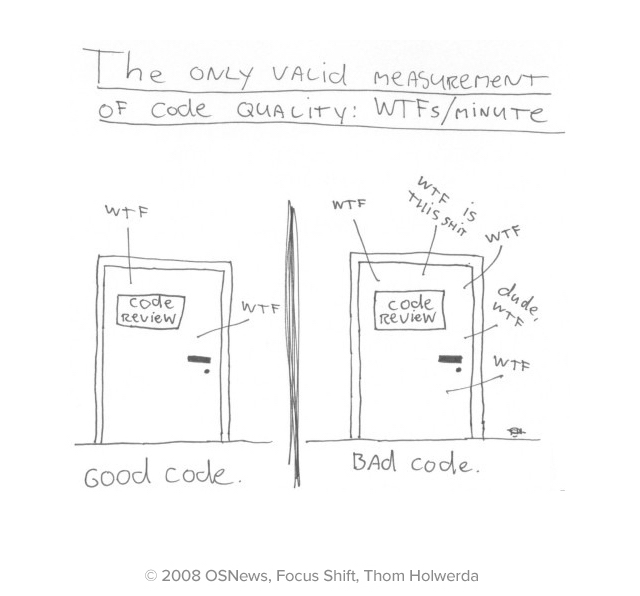 The ONLY VALID MEASUREMENT
OF CODE QUALITY: WTFs/MINUTE
WTF
CODE
REVIEW
WTF
GOOD CODE.
WTF
WTF IS
THIS SHIT
WTF
CODE
REVIEW
dude,
WTF
WTF
BAD CODE.
© 2008 OSNews, Focus Shift, Thom Holwerda